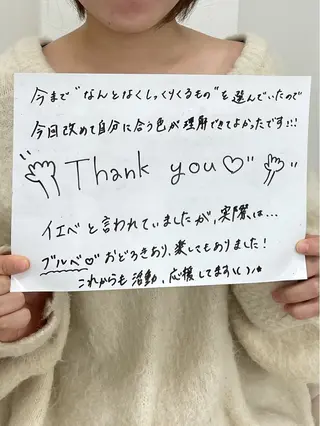 今まで"なんとなくしっくりくるもの"を選んでいたので
今日改めて自分に合う色が理解できてよかったです!!!
Thank you♡
イエベと言われていましたが、実際は...
ブルベ♡ おどろきあり、楽しくもありました!
これからも活動、応援してます